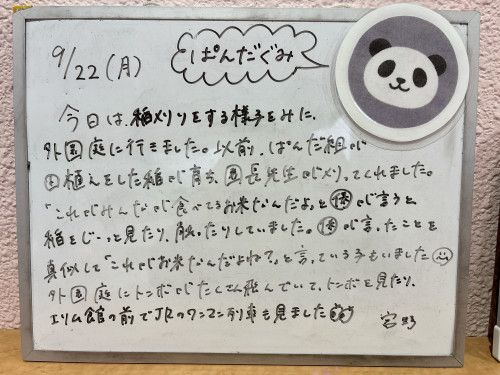 9/22(月)
ぱんだぐみ
今日は、稲刈りをする様子をみに、
外園庭に行きました。以前、ぱんだ組が
田植えをした稲が育ち、園長先生が刈ってくれました。
「これがみんなが食べてるお米なんだよ」と保が言うと、
稲をじーっと見たり、触ったりしていました。保が言ったことを
真似して「これがお米なんだよね？」と言っている子もいました
外園庭にトンボがたくさん飛んでいて、トンボを見たり、
エリム館の前でJRのワンマン列車も見ました
宮野